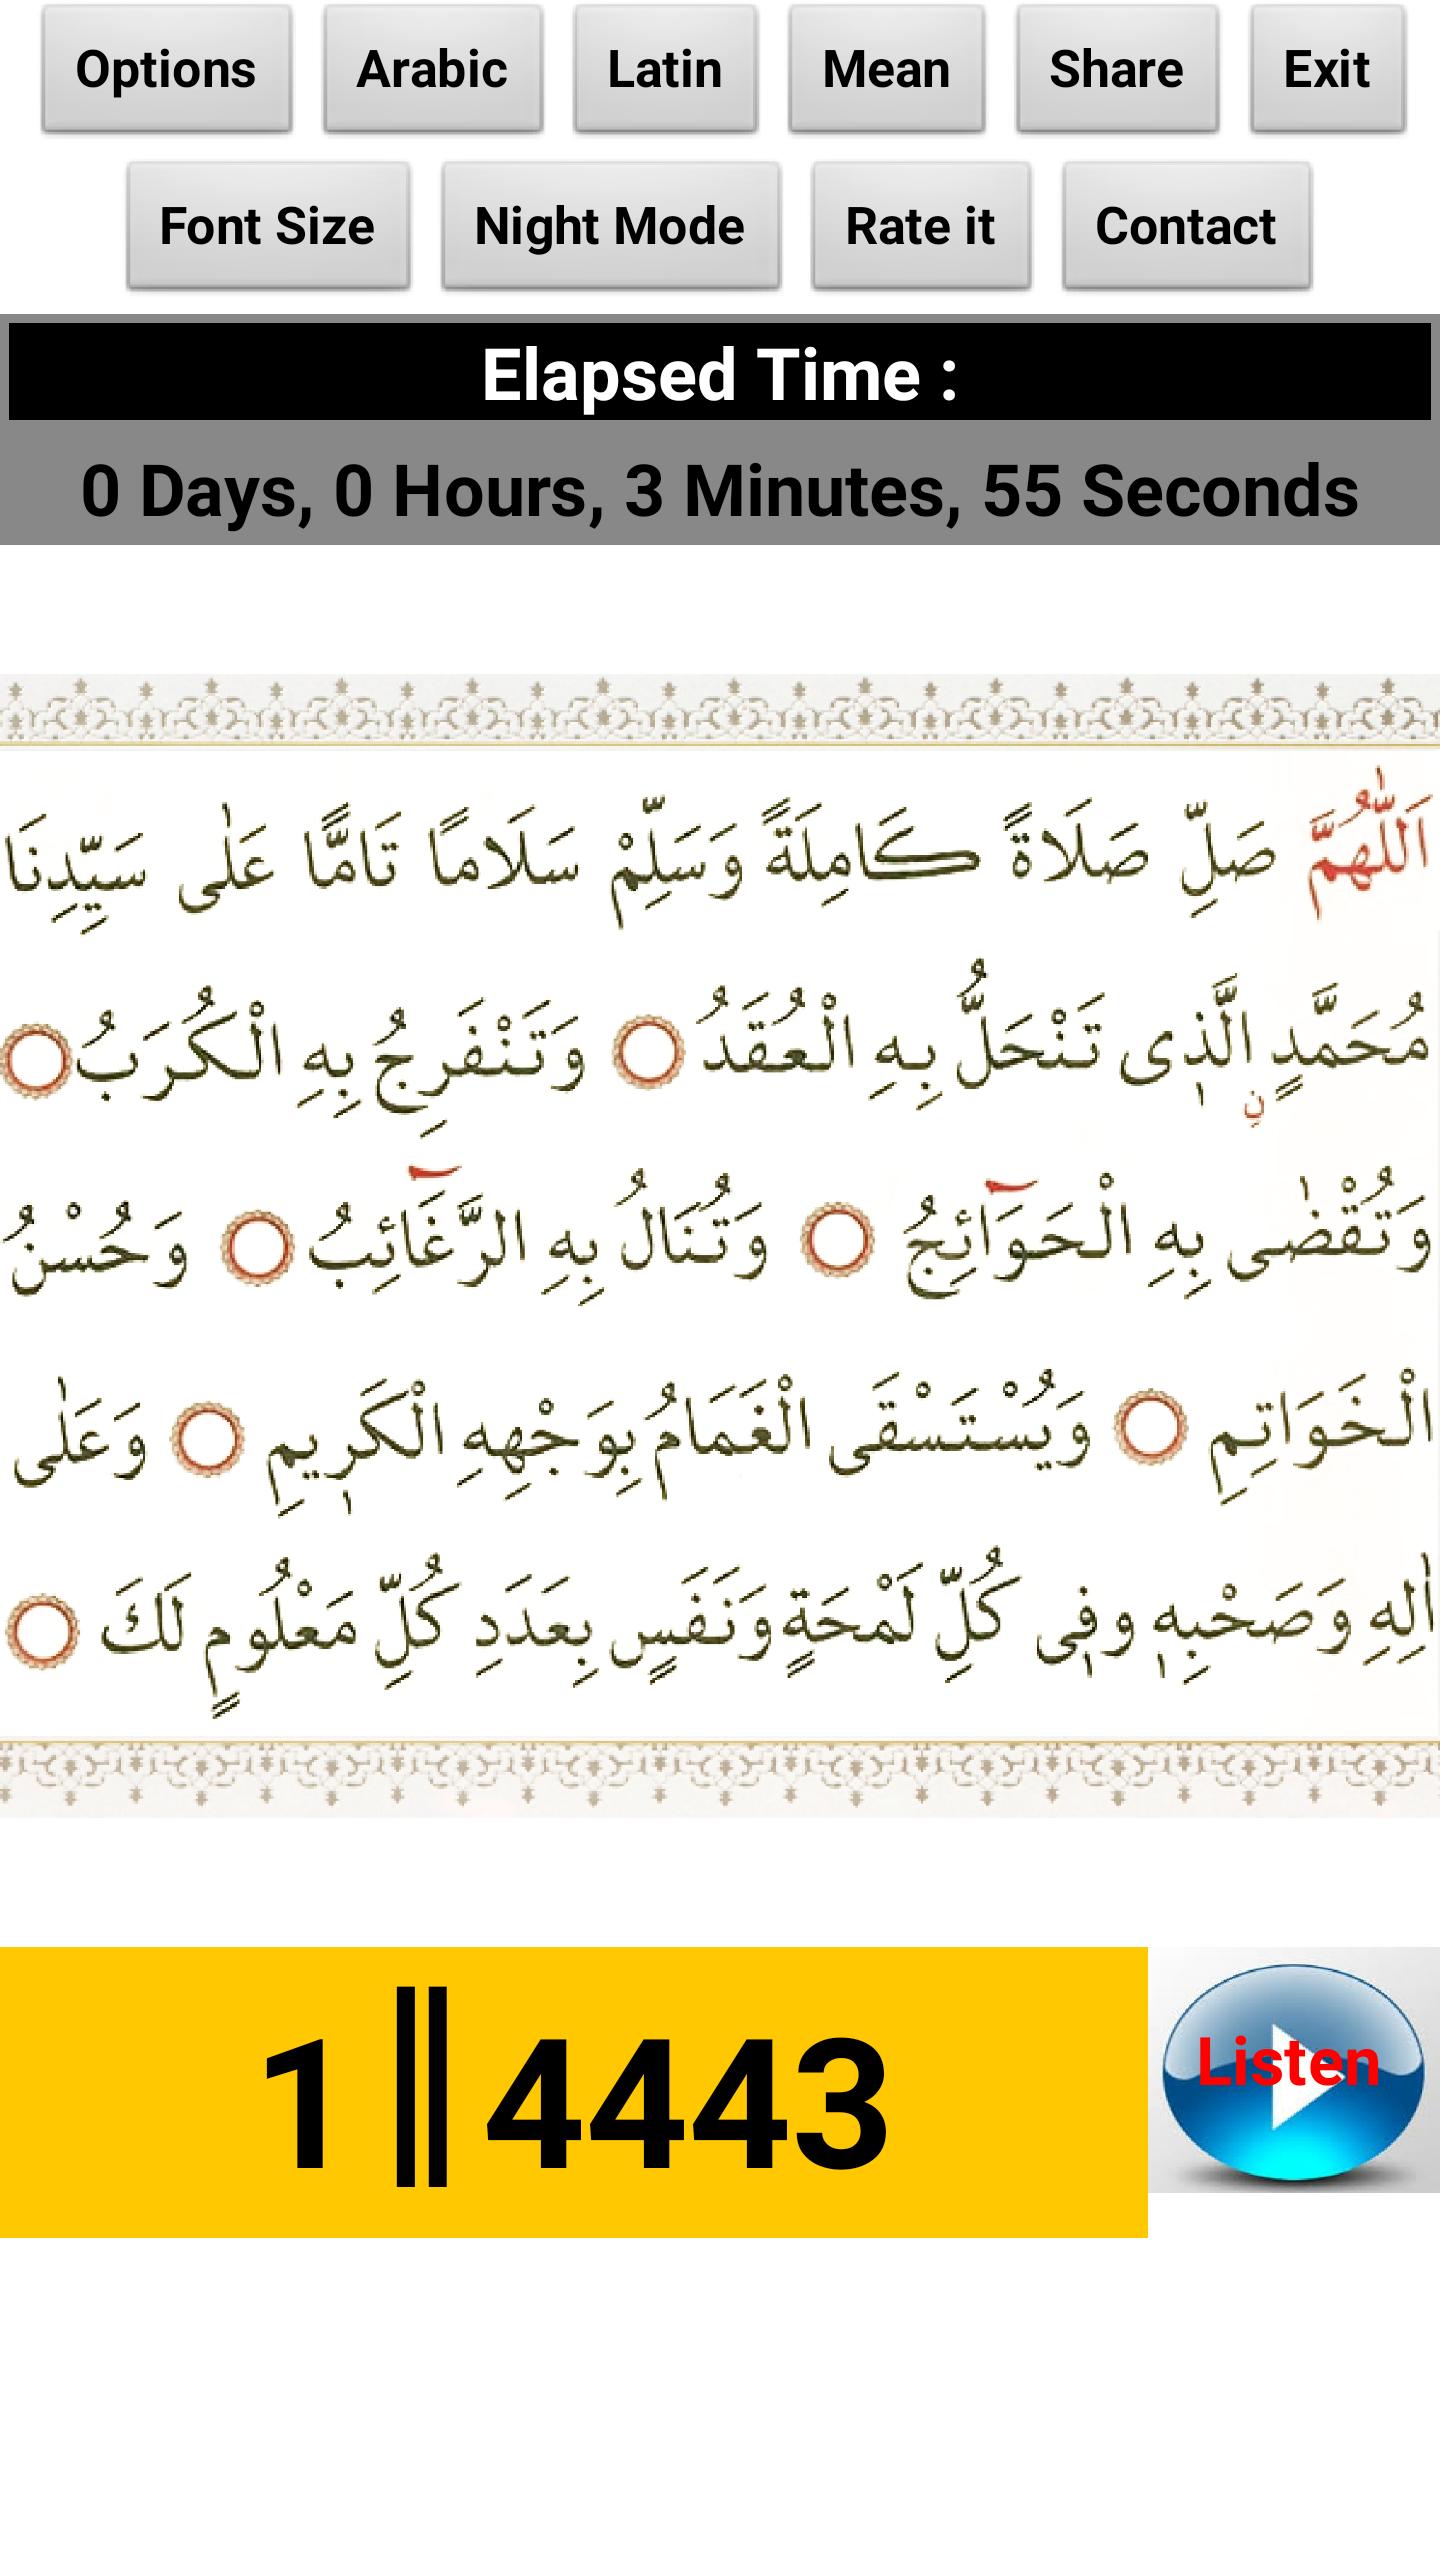 Options Arabic Latin Mean Share Exit
Font Size Night Mode Rate it Contact
Elapsed Time :
0 Days, 0 Hours, 3 Minutes, 55 Seconds
اَللّٰهُمَّ صَلِّ صَلَاةً كَامِلَةً وَسَلِّمْ سَلَامًا تَامًّا عَلٰى سَيِّدِنَا
مُحَمَّدٍ نِ الَّذ۪ى تَنْحَلُّ بِهِ الْعُقَدُ ۝ وَتَنْفَرِجُ بِهِ الْكُرَبُ ۝
وَتُقْضٰى بِهِ الْحَوَٓائِجُ ۝ وَتُنَالُ بِهِ الرَّغَٓائِبُ ۝ وَحُسْنُ
الْخَوَاتِمِ ۝ وَيُسْتَسْقَى الْغَمَامُ بِوَجْهِهِ الْكَر۪يمِ ۝ وَعَلٰى
اٰلِهِ وَصَحْبِه۪ وف۪ى كُلِّ لَمْحَةٍ وَنَفَسٍ بِعَدَدِ كُلِّ مَعْلُومٍ لَكَ ۝
1 || 4443
Listen